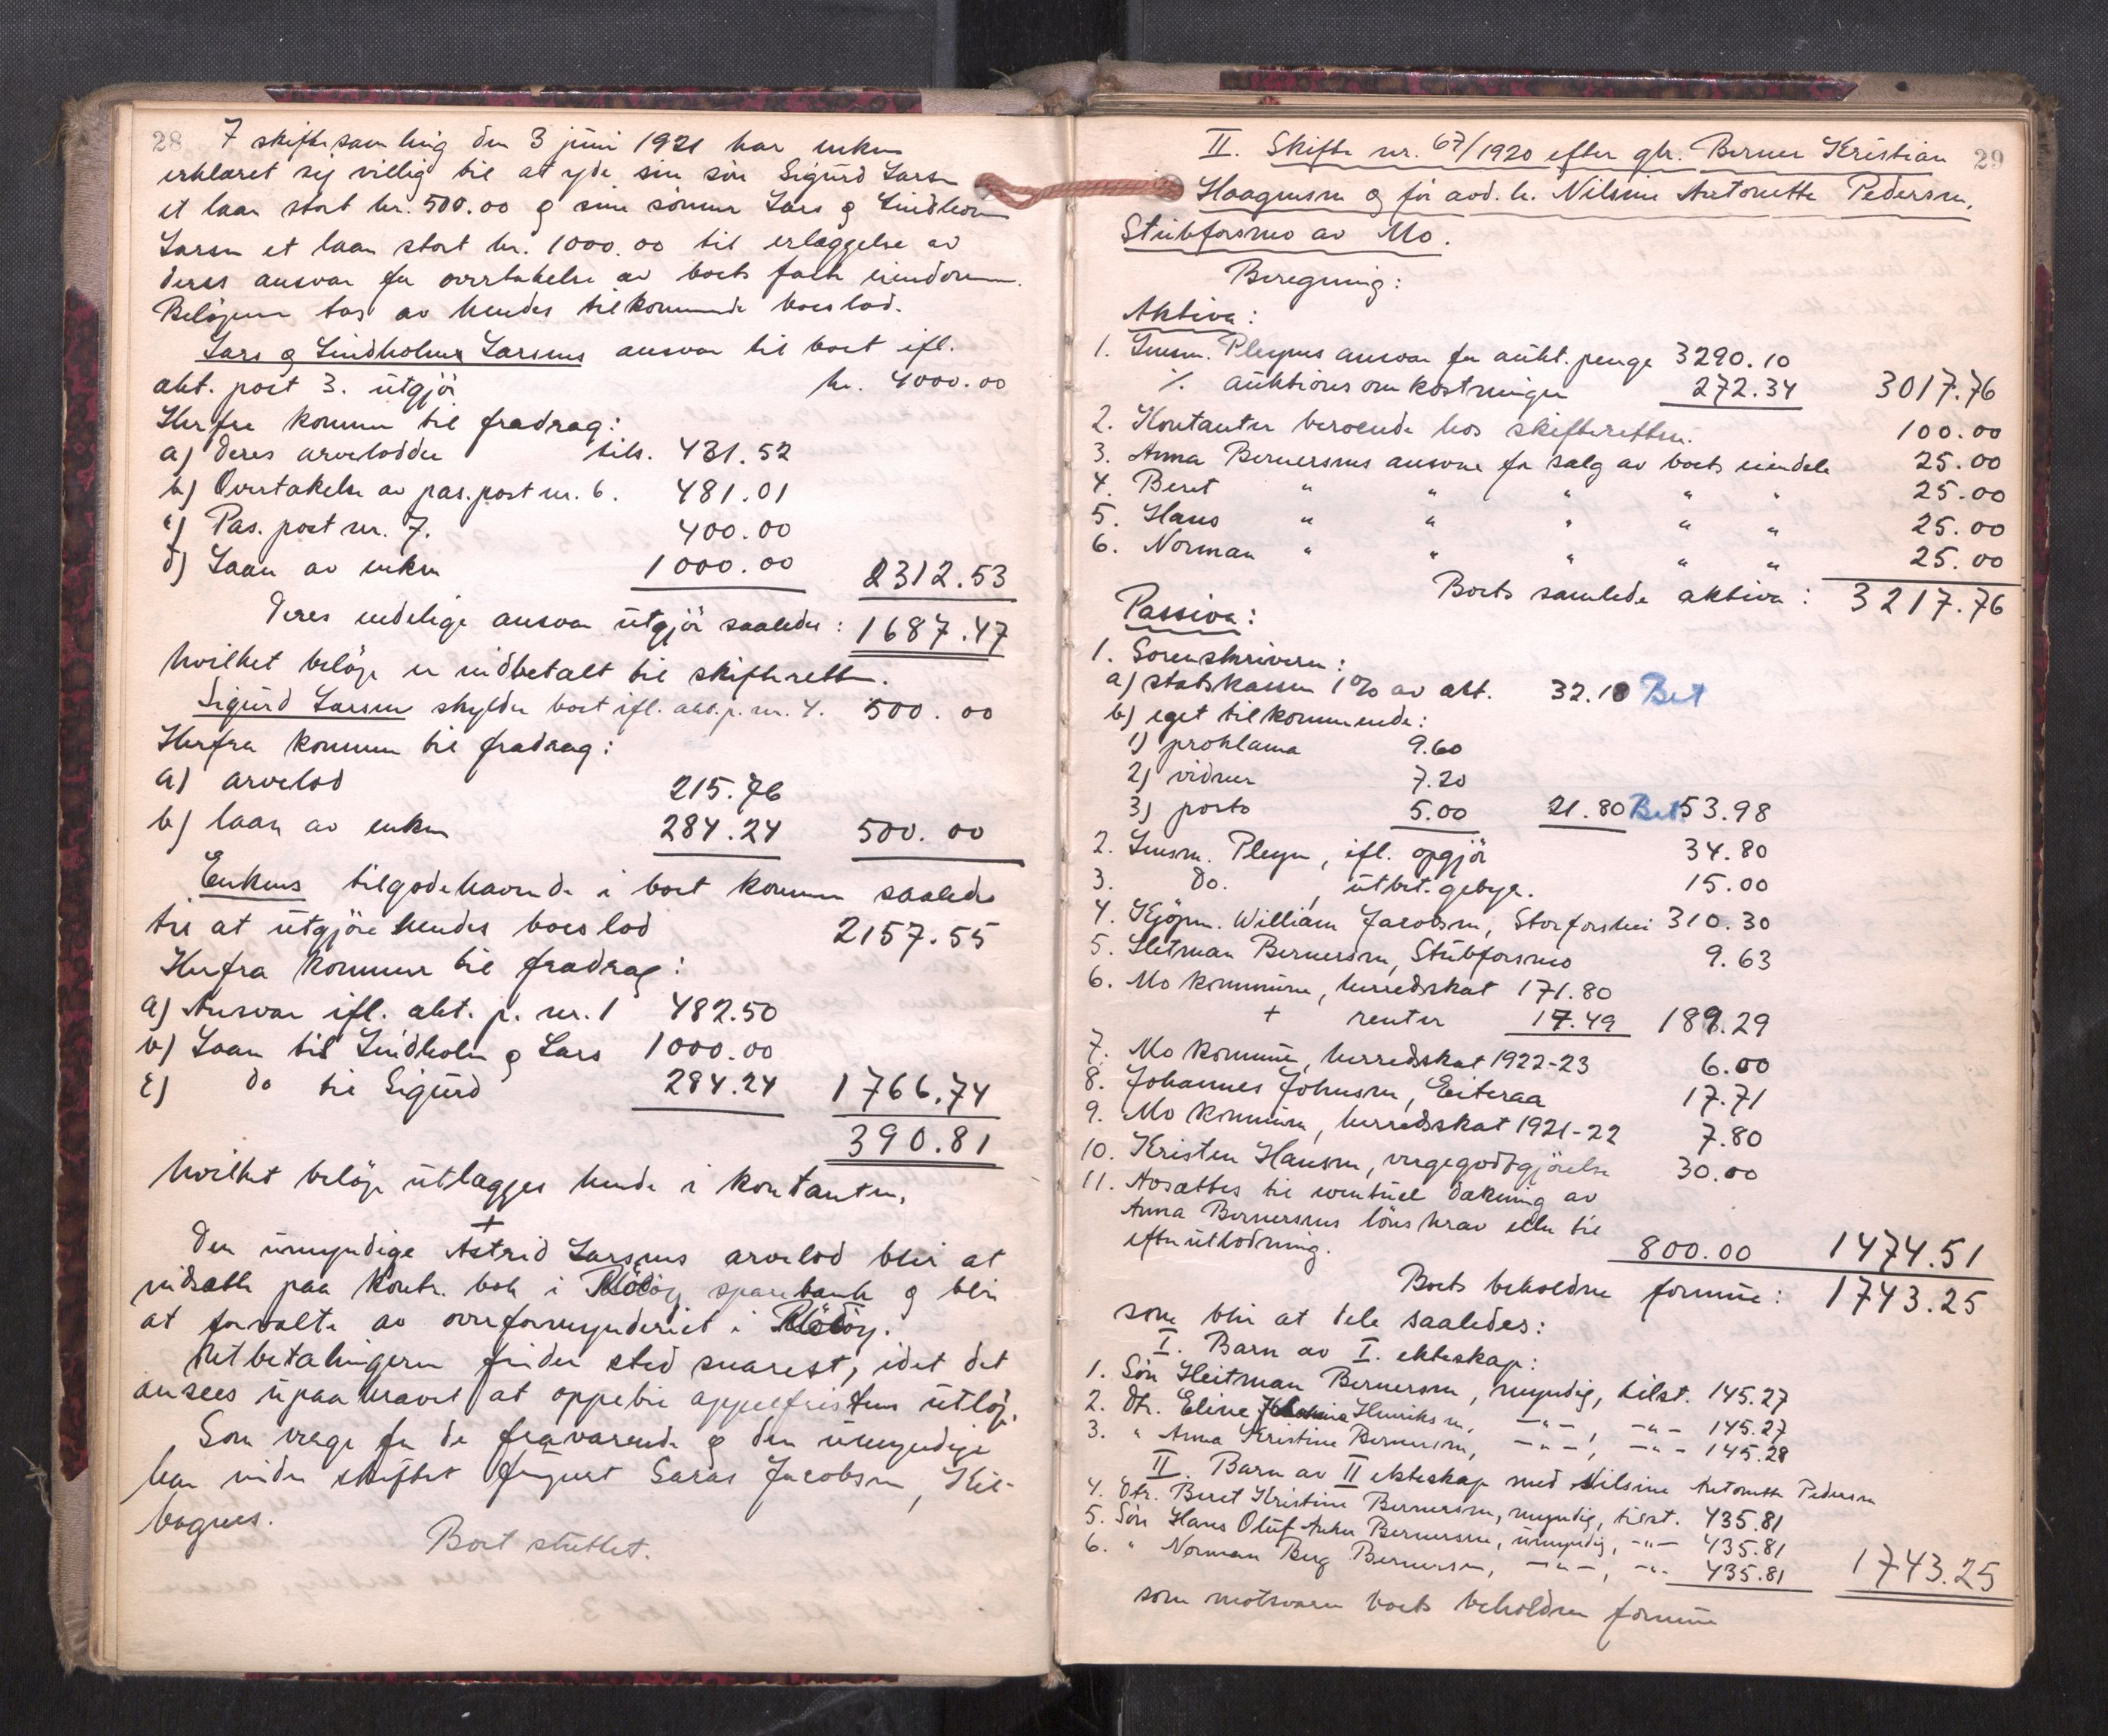 28
I skiftesamling den 3 juni 1921 har enken
erklæret sig villig til at yde sin sön Sigurd Larsen
et laan stort kr. 500.00 og sine sönner Lars og Lindholm
Larsen et laan stort kr. 1000.00 til erlæggelse av
deres ansvar for overtakelse av boets faste eiendom.
Belöpene tas av hendes tilkommende boeslod.
Lars og Lindholm Larsens ansvar til boet ifl.
akt. post 3. utgjör kr. 4000.00
Herfra kommer til fradrag:
a) deres arvelodder tils. 431.52
b) Overtakelse av pas. post nr. 6. 481.01
c) Pas. post nr. 7. 400.00
d) Laan av enken 1000.00 2312.53
Deres endelige ansvar utgjör saaledes: 1687.47
hvilket belöp er indbetalt til skifteretten.
Sigurd Larsen skylder boet ifl. akt. p. nr. 4. 500.00
Herfra kommer til fradrag:
a) arvelod 215.76
b) laan av enken 284.24 500.00
Enkens tilgodehavende i boet kommer saaledes
til at utgjöre hendes boeslod 2157.55
Herfra kommer til fradrag:
a) Ansvar ifl. akt. p. nr. 1 482.50
b) Laan til Lindholm og Lars 1000.00
c) do til Sigurd 284.24 1766.74
390.81
hvilket belöp utlægges hende i kontanter.
+
Den umyndige Astrid Larsens arvelod blir at
indsætte paa kontr. bok i Rödöy sparebank og blir
at forvalte av overformynderiet i Rödöy.
Utbetalingen finder sted snarest, idet det
ansees upaakrævet at oppebie appelfristens utløp.
Som verge for de fraværende og den umyndige
har under skiftet fungert Saras Jacobsen, Kil-
bognes.
Boet sluttet.
29
II. Skifte nr. 67/1920 efter gbr. Berner Kristian
Haagensen og før avd. h. Nilsine Antonette Pedersen,
Stubforsmo av Mo.
Beregning:
Aktiva:
1. Lensm. Pleyms ansvar for aukt. penge 3290.10
% auktionsomkostninger 272.34 3017.76
2. Kontanter beroende hos skifteretten. 100.00
3. Anna Bernersens ansvar for salg av boets eiendele 25.00
4. Beret " " " " " 25.00
5. Hans " " " " " 25.00
6. Norman " " " " " 25.00
Boets samlede aktiva: 3217.76
Passiva:
1. Sorenskriveren:
a) statskassen 1% av akt. 32.18 Bet
b) eget tilkommende:
1) proklama 9.60
2) vidner 7.20
3) porto 5.00 21.80 Bet 53.98
2. Lensm. Pleym, ifl. opgjör 34.80
3. Do. , utbet. gebyr. 15.00
4. Kjöpm. William Jacobsen, Storforshei 310.30
5. Heitman Bernersen, Stubforsmo 9.63
6. Mo kommune, herredsskat 171.80
+ renter 17.49 189.29
7. Mo kommune, herredsskat 1922-23 6.00
8. Johannes Johnsen, Eiteraa 17.71
9. Mo kommune, herredsskat 1921-22 7.80
10. Kristen Hansen, vergegodtgjörelse 30.00
11. Avsættes til eventuel dækning av
Anna Bernersens lönskrav eller til
efterutlodning. 800.00 1474.51
Boets beholdne formue: 1743.25
som blir at dele saaledes:
I. Barn av I. ekteskap:
1. Sön Heitman Bernersen, myndig, tilst. 145.27
2. Dtr. Eline Henriksen, -"-, -"- 145.27
3. " Anna Kristine Bernersen, -"-, -"- 145.28
II. Barn av II ekteskap med Nilsine Antonette Pedersen
4. Dtr. Beret Kristine Bernersen, myndig, tilst. 435.81
5. Sön Hans Oluf Anker Bernersen, umyndig, -"- 435.81
6. " Norman Berg Bernersen, -"-, -"- 435.81 1743.25
som motsvarer boets beholdne formue